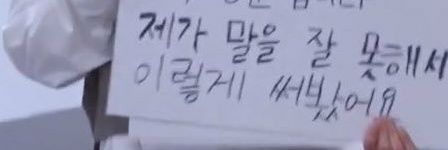 제가 말을 잘 못해서
이렇게 써봤어요